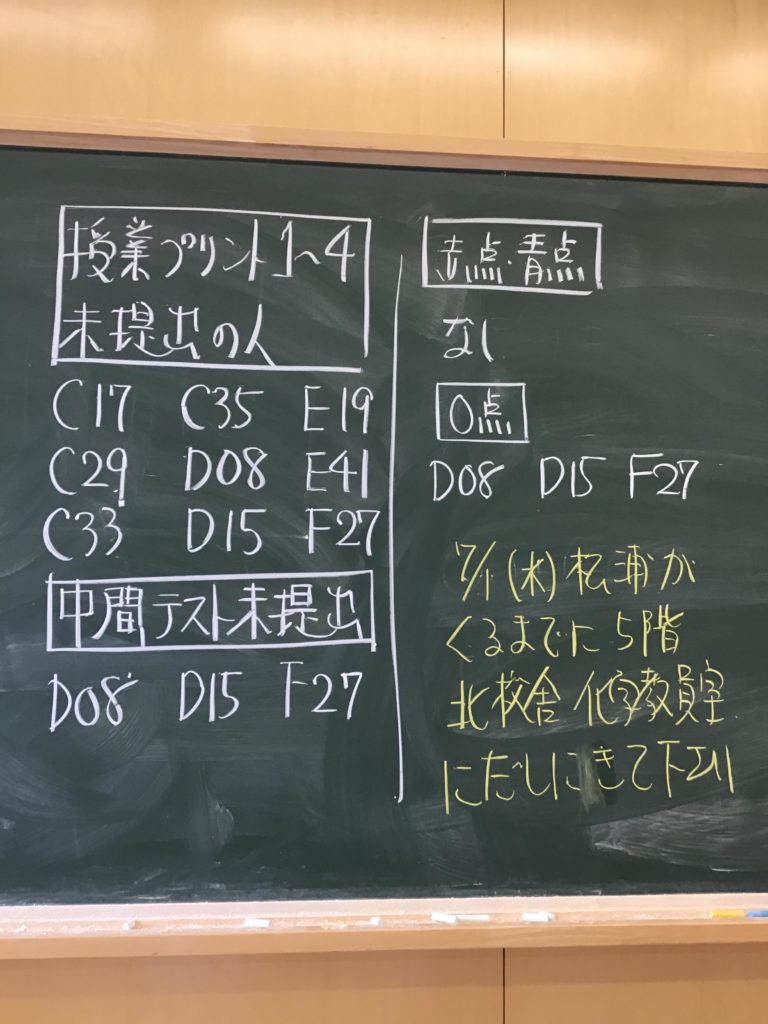 授業プリント1~4
未提出の人
C17 C35 E19
C29 D08 E41
C33 D15 F27
中間テスト未提出
D08 D15 F27
赤点・青点
なし
0点
D08 D15 F27
7/1(水)松浦が
くるまでに5階
北校舎 化学教員室
にだしにきて下さい